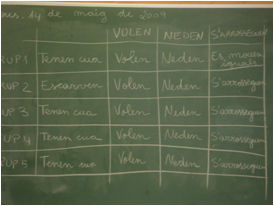 res, 14 de maig de 2009
VOLEN NEDEN S'ARROSSEGUEN
RUP 1 Tenen cua Volen Neden Es mouen iguals
RUP 2 Escarven Volen Neden S'arrosseguen
RUP 3 Tenen cua Volen Neden S'arrosseguen
RUP 4 Tenen cua Volen Neden S'arrosseguen
RUP 5 Tenen cua Volen Neden S'arrosseguen